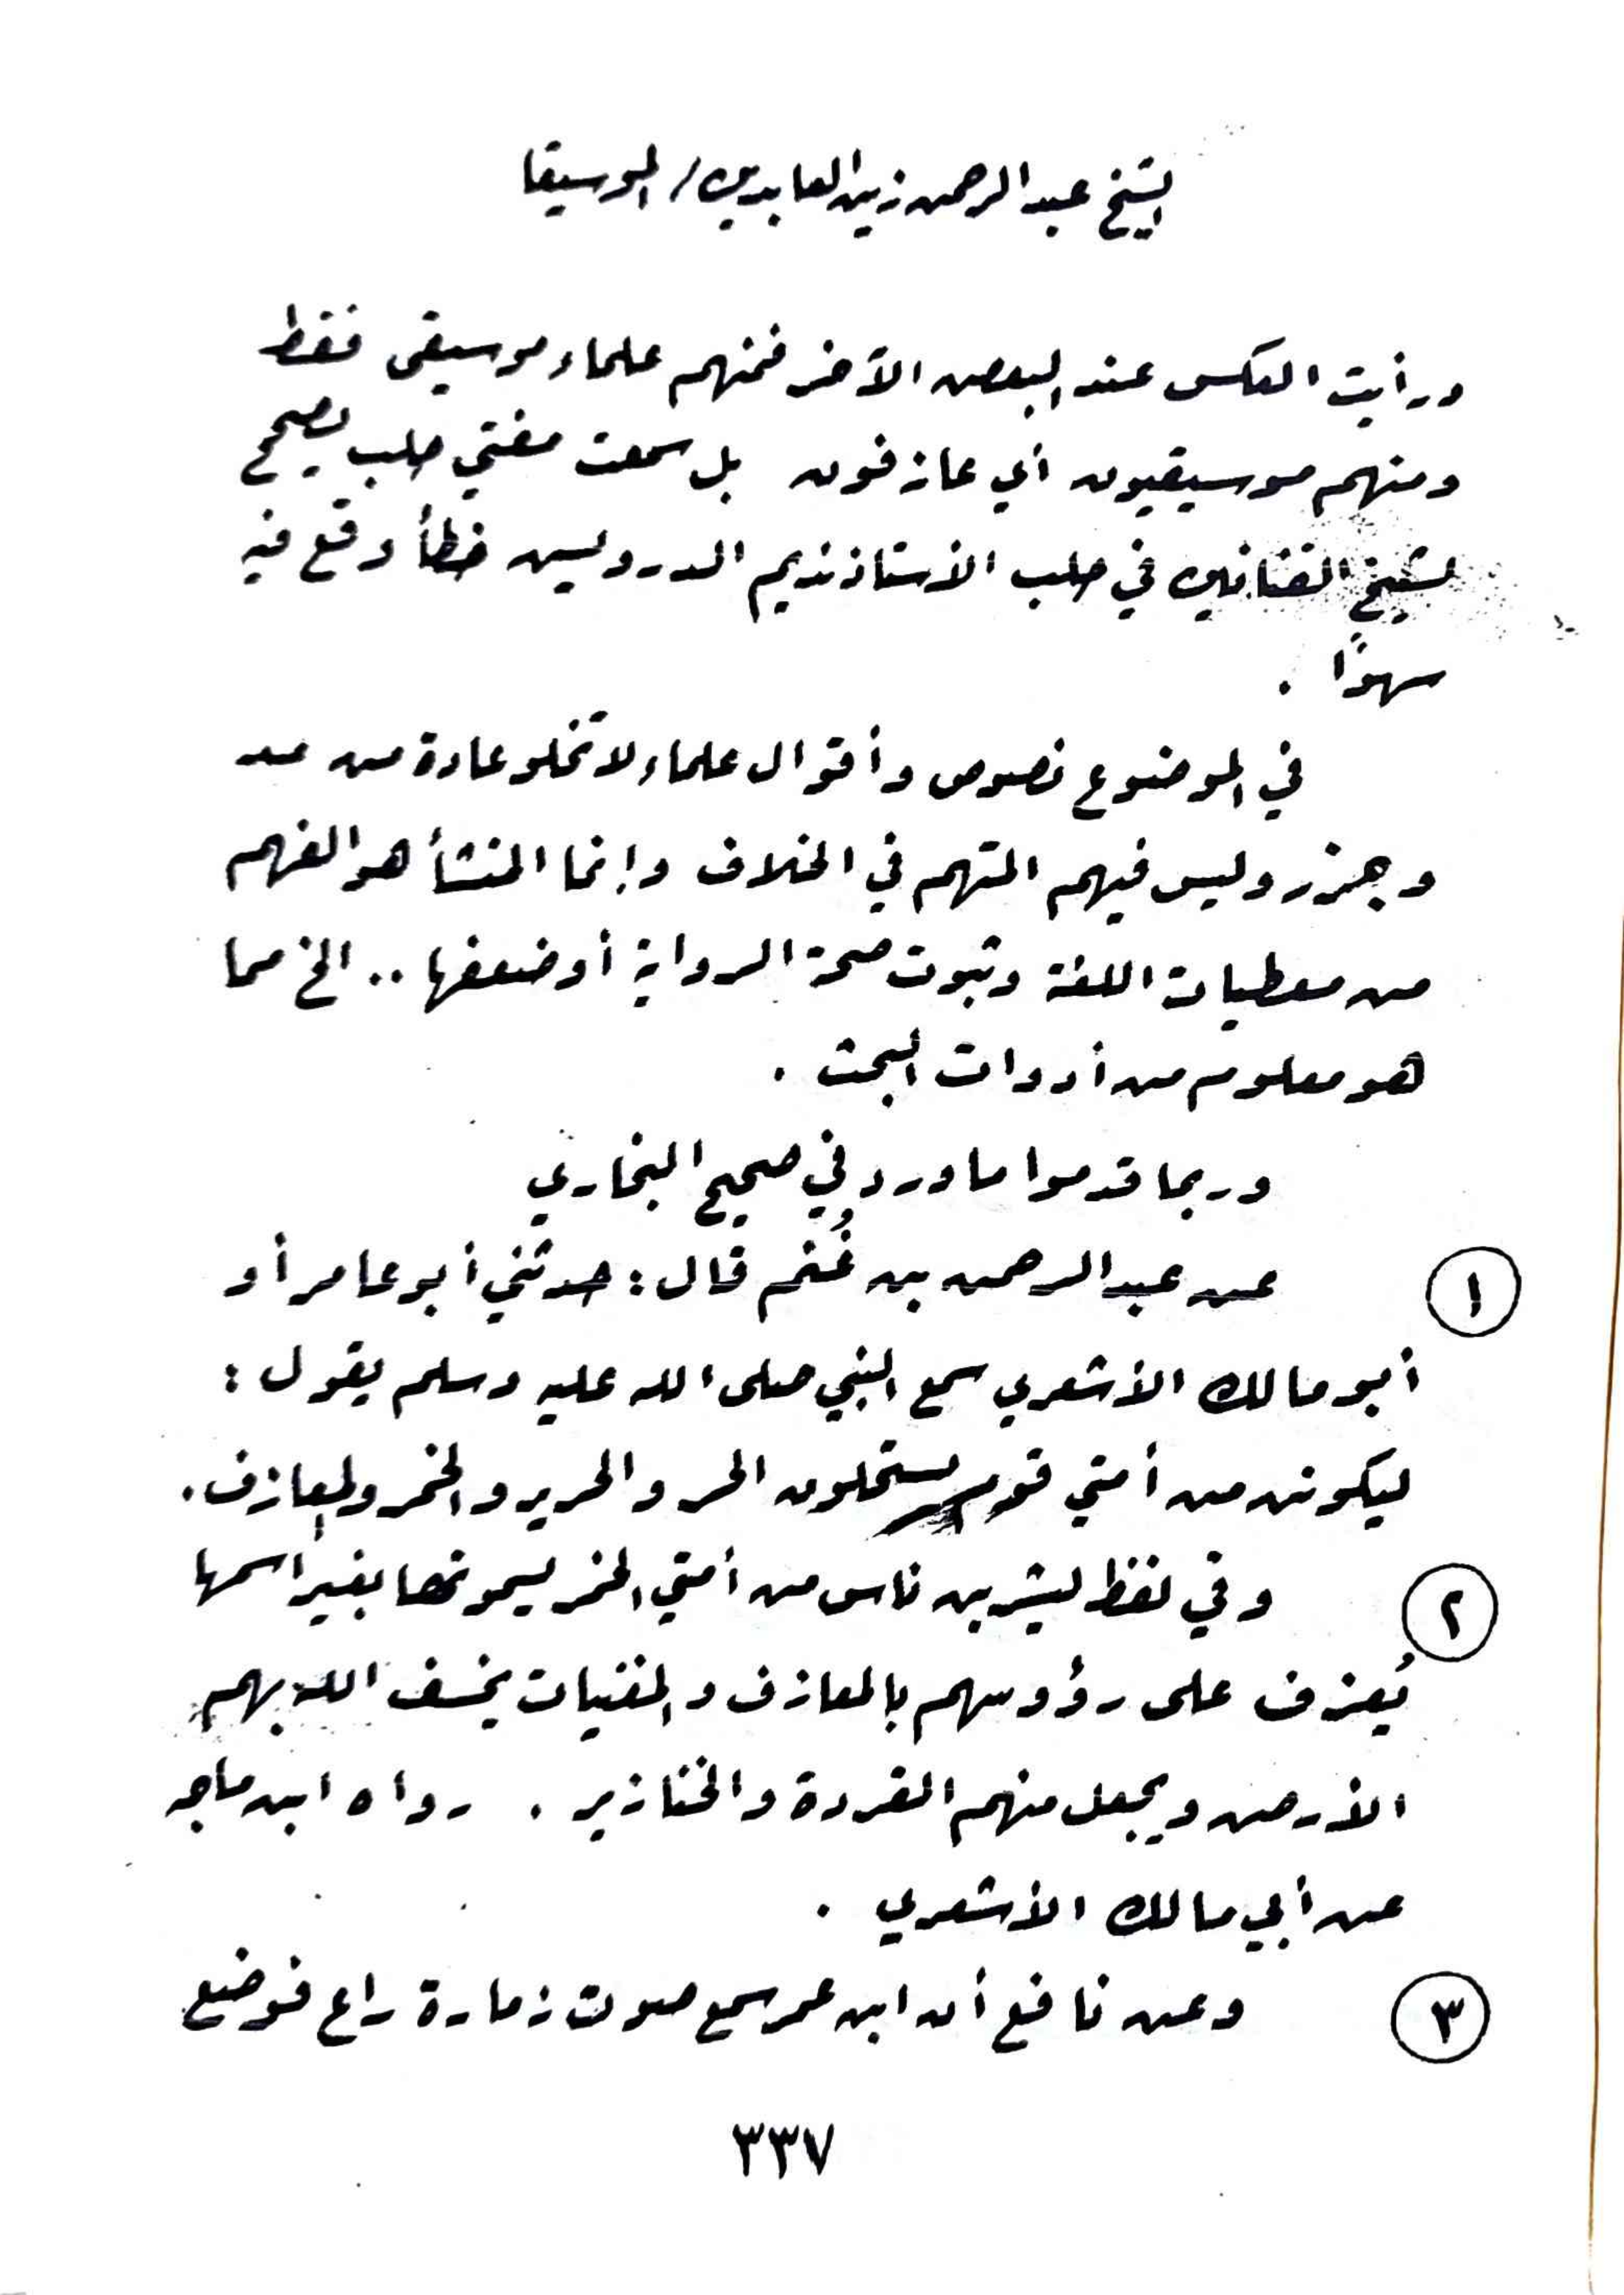 الشيخ عبد الرحمن زين العابدين / الموسيقا
ورأيت العكس عند البعض الآخر فمنهم علماء موسيقى فقط
ومنهم موسيقيون أي عازفون بل سمعت مفتي حلب يصحح
لشيخ الفنانين في حلب الأستاذ نديم الدرويش خطأ وقع فيه
سهوًا .
في الموضوع نصوص وأقوال علماء لا تخلو عادة من مد
وجزر وليس فيهم المتهم في الخلاف وإنما المنشأ هو الفهم
من معطيات اللغة وثبوت صحة الرواية أو ضعفها .. الخ مما
هو معلوم من أدوات البحث .
وربما قدموا ما ورد في صحيح البخاري
١ عن عبد الرحمن بن غُنم قال : حدثني أبو عامر أو
أبو مالك الأشعري سمع النبي صلى الله عليه وسلم يقول :
ليكونن من أمتي قوم يستحلون الحر والحرير والخمر والمعازف .
٢ وفي لفظ ليشربن ناس من أمتي الخمر يسمونها بغير اسمها
يُعزف على رؤوسهم بالمعازف والمغنيات يخسف الله بهم
الأرض ويجعل منهم القردة والخنازير . رواه ابن ماجه
عن أبي مالك الأشعري .
٣ وعن نافع أن ابن عمر سمع صوت زمارة راع فوضع
٣٣٧